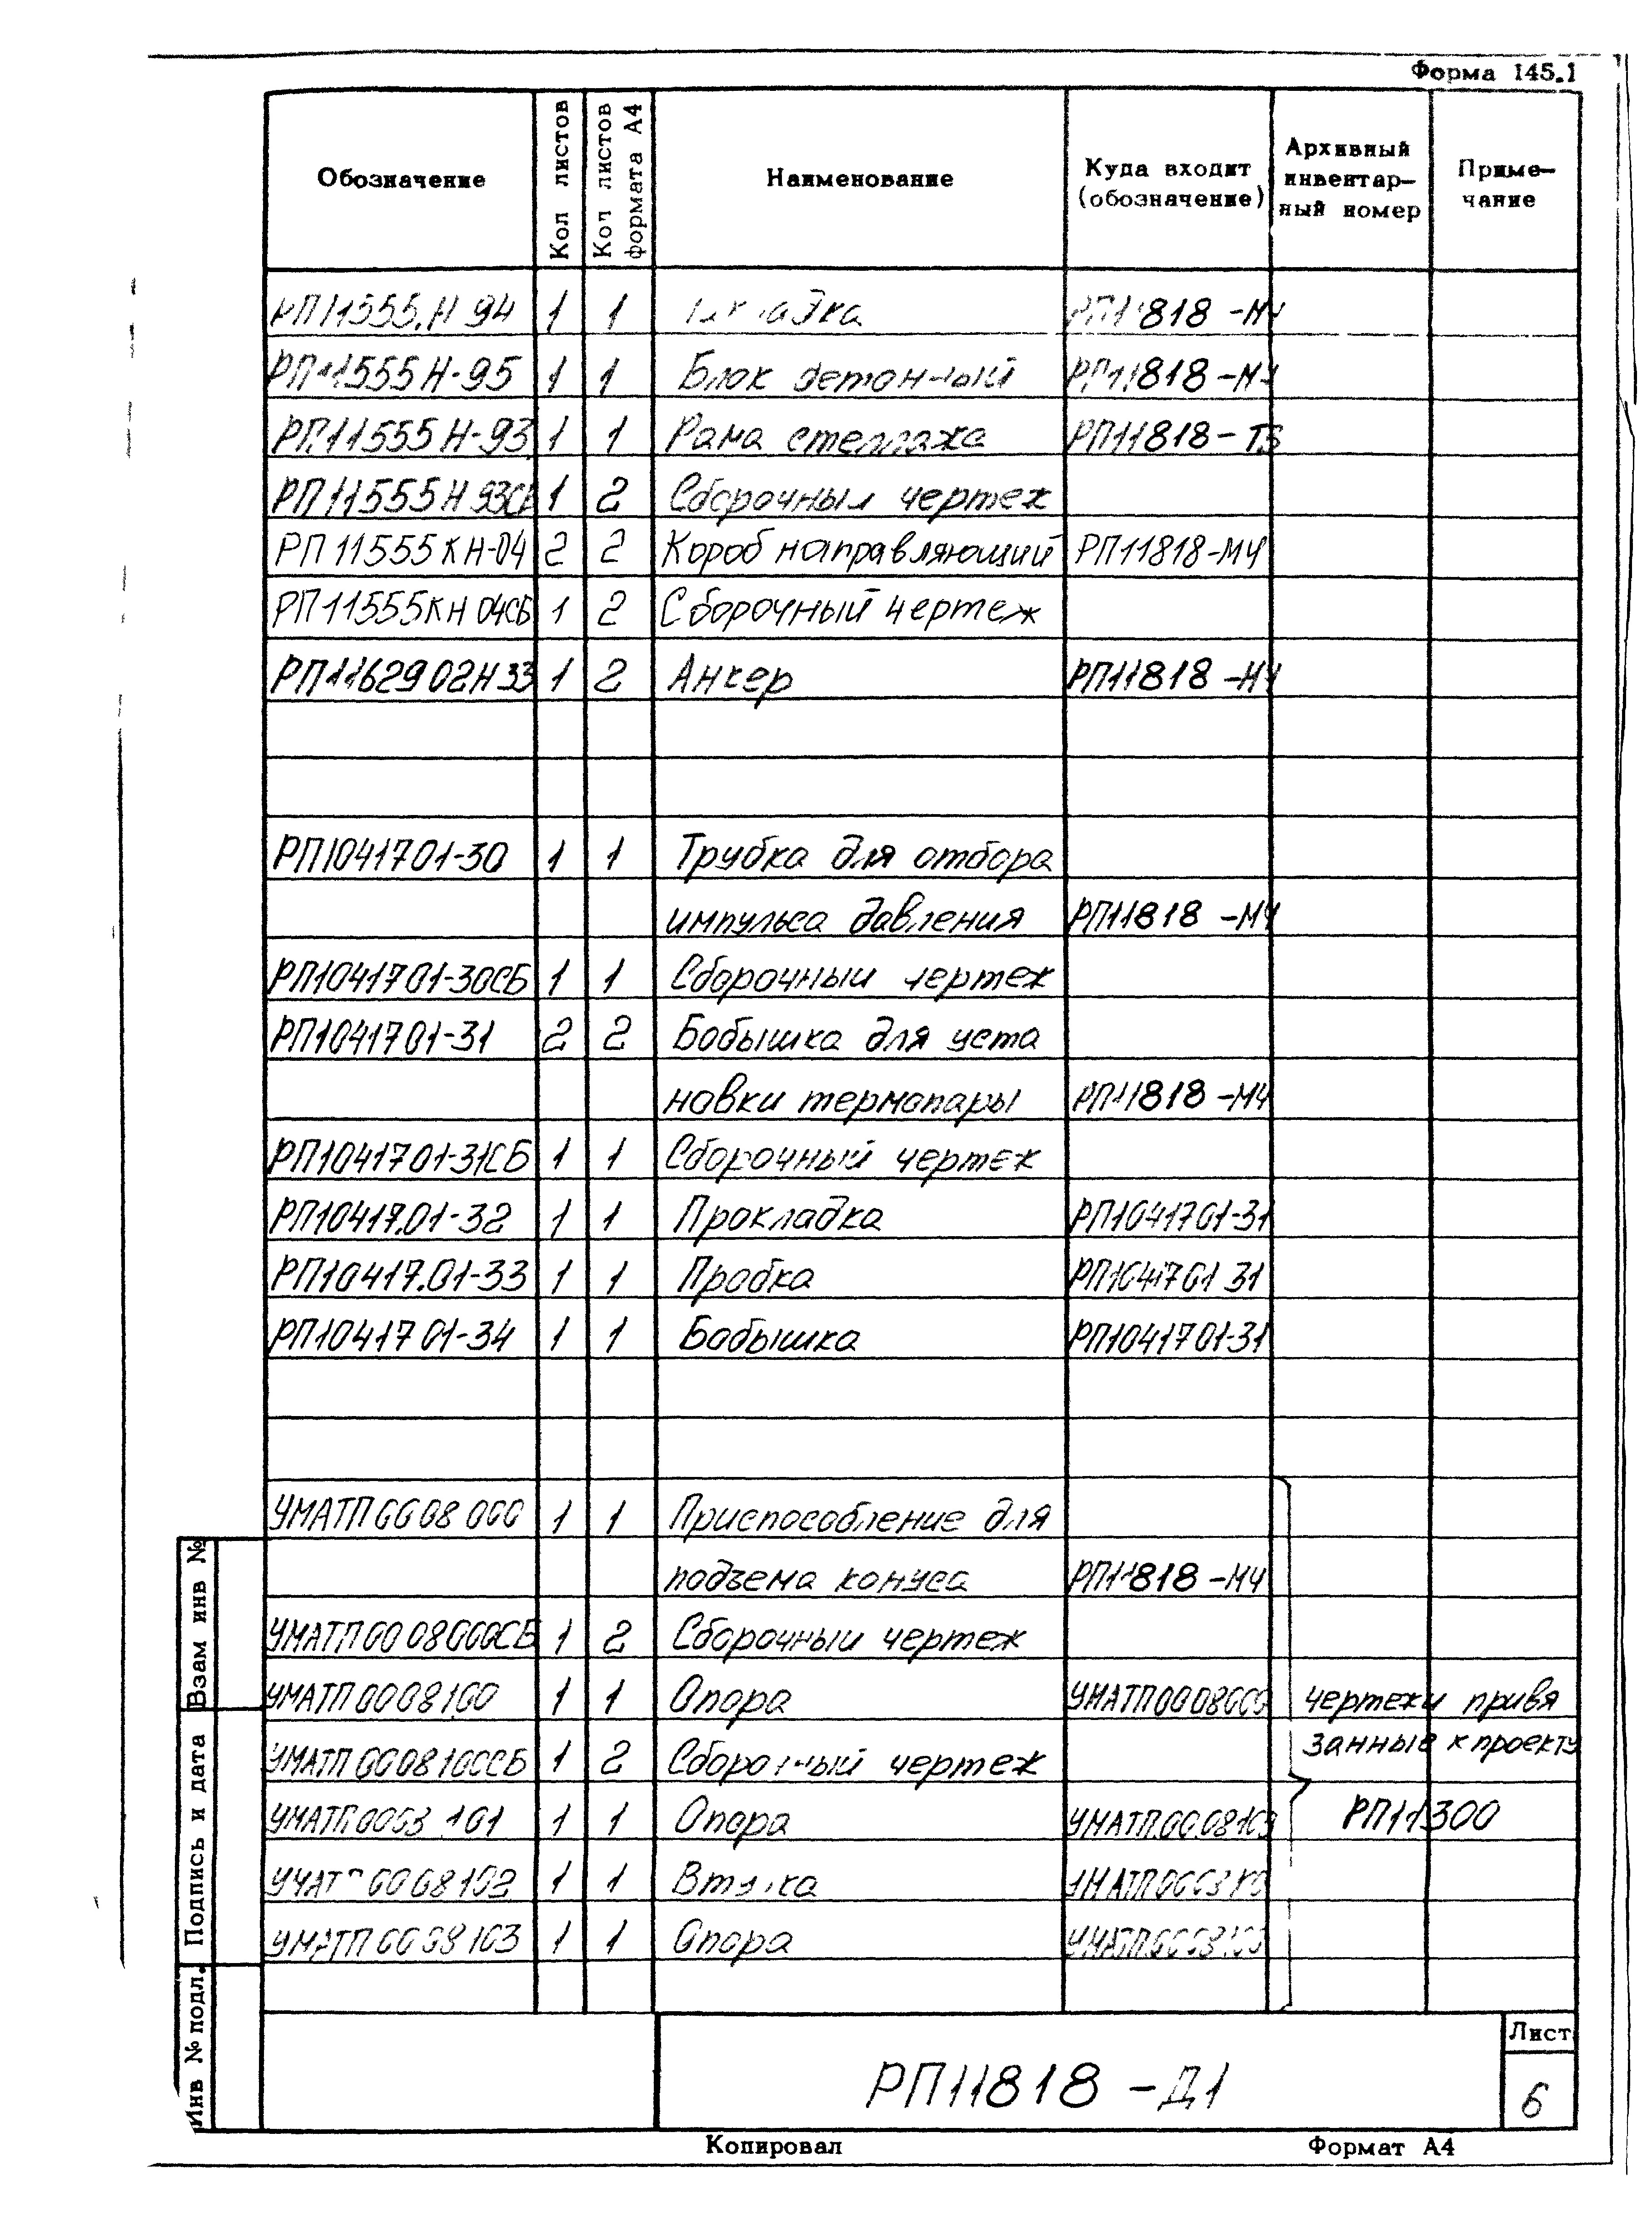 Форма 145.1
Обозначение | Кол листов | Кол листов формата А4 | Наименование | Куда входит (обозначение) | Архивный инвентар- ный номер | Приме- чание
РП11555.Н 94 1 1 РП11818-МЧ
РП11555Н-95 1 1 Блок бетонный РП11818-МЧ
РП11555Н-93 1 1 Рама стеллажа РП11818-Т3
РП11555Н 93СБ 1 2 Сборочный чертеж
РП11555КН-04 2 2 Короб направляющий РП11818-МЧ
РП11555КН 04СБ 1 2 Сборочный чертеж
РП1162902Н33 1 2 Анкер РП11818-МЧ
РП1041701-30 1 1 Трубка для отбора
импульса давления РП11818-МЧ
РП1041701-30СБ 1 1 Сборочный чертеж
РП1041701-31 2 2 Бобышка для уста
новки термопары РП11818-МЧ
РП1041701-31СБ 1 1 Сборочный чертеж
РП10417.01-32 1 1 Прокладка РП1041701-31
РП10417.01-33 1 1 Пробка РП1041701 31
РП1041701-34 1 1 Бобышка РП1041701-31
УМАТП0008 000 1 1 Приспособление для
подъема конуса РП11818-МЧ
УМАТП0008000СБ 1 2 Сборочный чертеж
УМАТП0008100 1 1 Опора УМАТП0008000 чертежи привя
занные к проекту
УМАТП0008100СБ 1 2 Сборочный чертеж
РП11300
УМАТП0008 101 1 1 Опора
УМАТП0008102 1 1 Втулка
УМАТП0008103 1 1 Опора
Взам инв №
Подпись и дата
Инв № подл.
РП11818-Д1
Лист
6
Копировал Формат А4